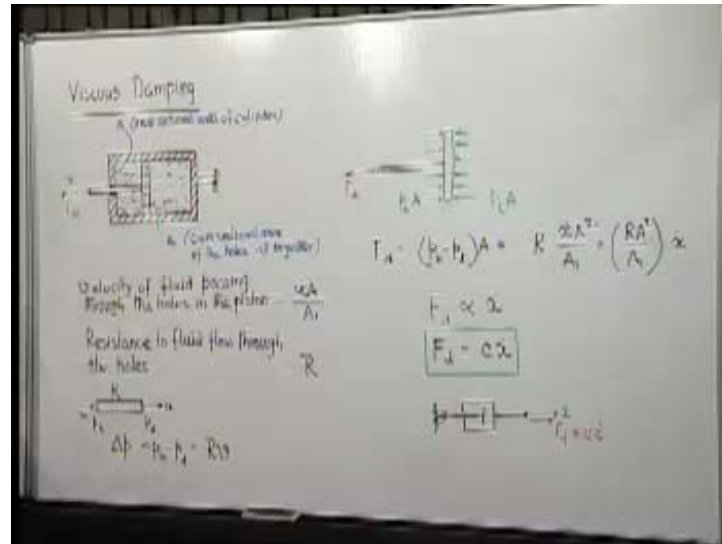 Viscous Damping
A (cross sectional area of cylinder)
A₁ (cross sectional area
of the holes all together)
Velocity of fluid passing
through the holes in the piston = ẋA/A₁
Resistance to fluid flow through
the holes R
R
Δp = p₂ - p₁ = Rv
p₂A p₁A
F_d = (p₂-p₁)A = R ẋA²/A₁ = (RA²/A₁) ẋ
F_d ∝ ẋ
F_d = cẋ
ẋ
F_d = cẋ